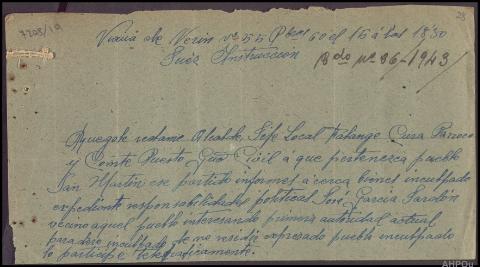 7208/19
28
Verin nº 55 Pbras 60 el 15 á las 18'30
Juez Instruccion
nº 86-1943
Ruegole reclame Alcalde Jefe Local Falange Cura Parroco
y Comte Puesto Gua Civil a que pertenezca pueblo
San Martin ese partido informes á cerca bienes inculpado
expediente responsabilidades politicas José Garcia
vecino aquel pueblo interesando primera autoridad actual
paradero inculpado de no residir expresado pueblo inculpado
lo participe telegraficamente.
AHPOu